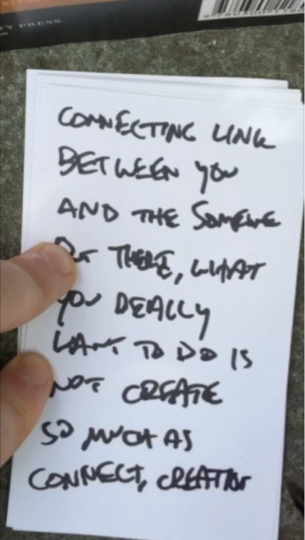 Y PRESS
CONNECTING LINK
BETWEEN YOU
AND THE SOMEONE
OUT THERE, WHAT
YOU REALLY
WANT TO DO IS
NOT CREATE
SO MUCH AS
CONNECT, CREATION